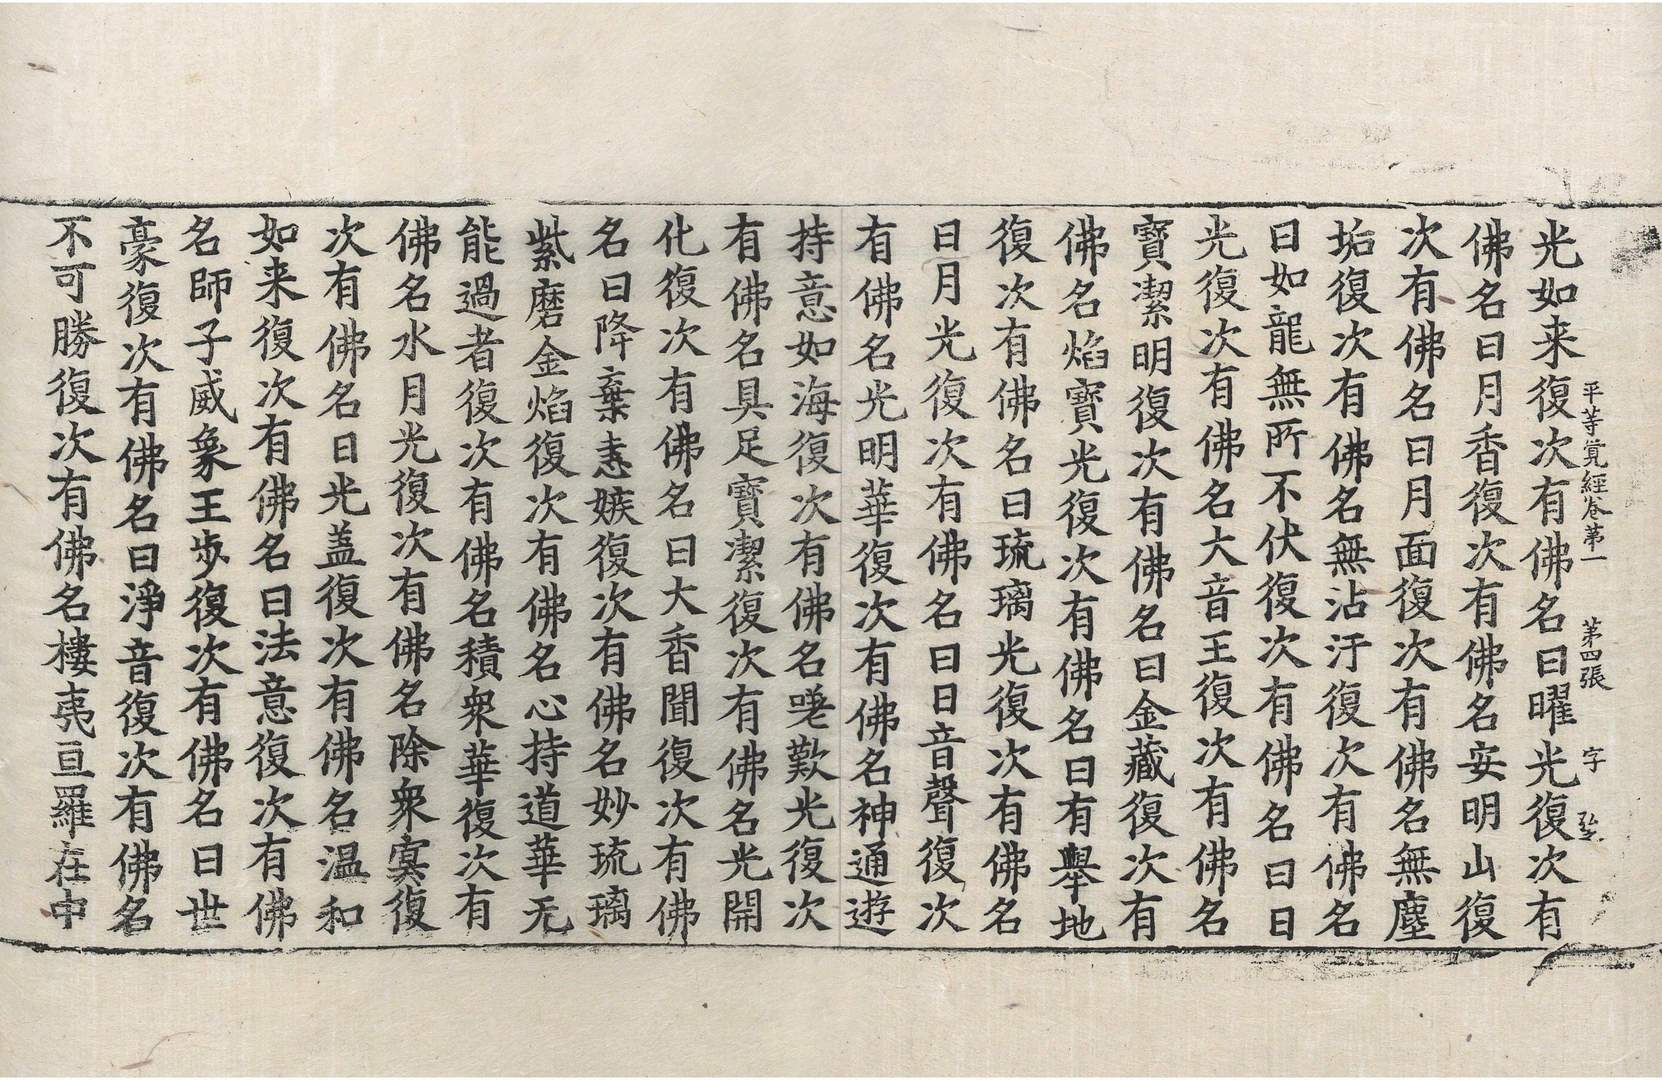 平等覺經卷第一　第四張　字
光如来復次有佛名曰曜光復次有
佛名曰月香復次有佛名安明山復
次有佛名曰月面復次有佛名無塵
垢復次有佛名無沾汙復次有佛名
曰如龍無所不伏復次有佛名曰日
光復次有佛名大音王復次有佛名
寶潔明復次有佛名曰金藏復次有
佛名焰寶光復次有佛名曰有舉地
復次有佛名曰琉璃光復次有佛名
日月光復次有佛名曰日音聲復次
有佛名光明華復次有佛名神通遊
持意如海復次有佛名嗟歎光復次
有佛名具足寶潔復次有佛名光開
化復次有佛名曰大香聞復次有佛
名曰降棄恚嫉復次有佛名妙琉璃
紫磨金焰復次有佛名心持道華无
能過者復次有佛名積衆華復次有
佛名水月光復次有佛名除衆寞復
次有佛名日光盖復次有佛名温和
如来復次有佛名曰法意復次有佛
名師子威象王步復次有佛名曰世
豪復次有佛名曰淨音復次有佛名
不可勝復次有佛名樓夷亘羅在中